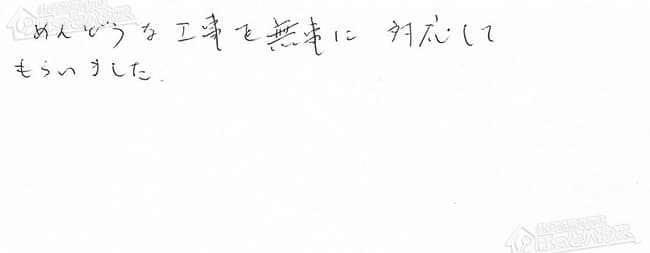 めんどうな工事を無事に 対応して
もらいました.